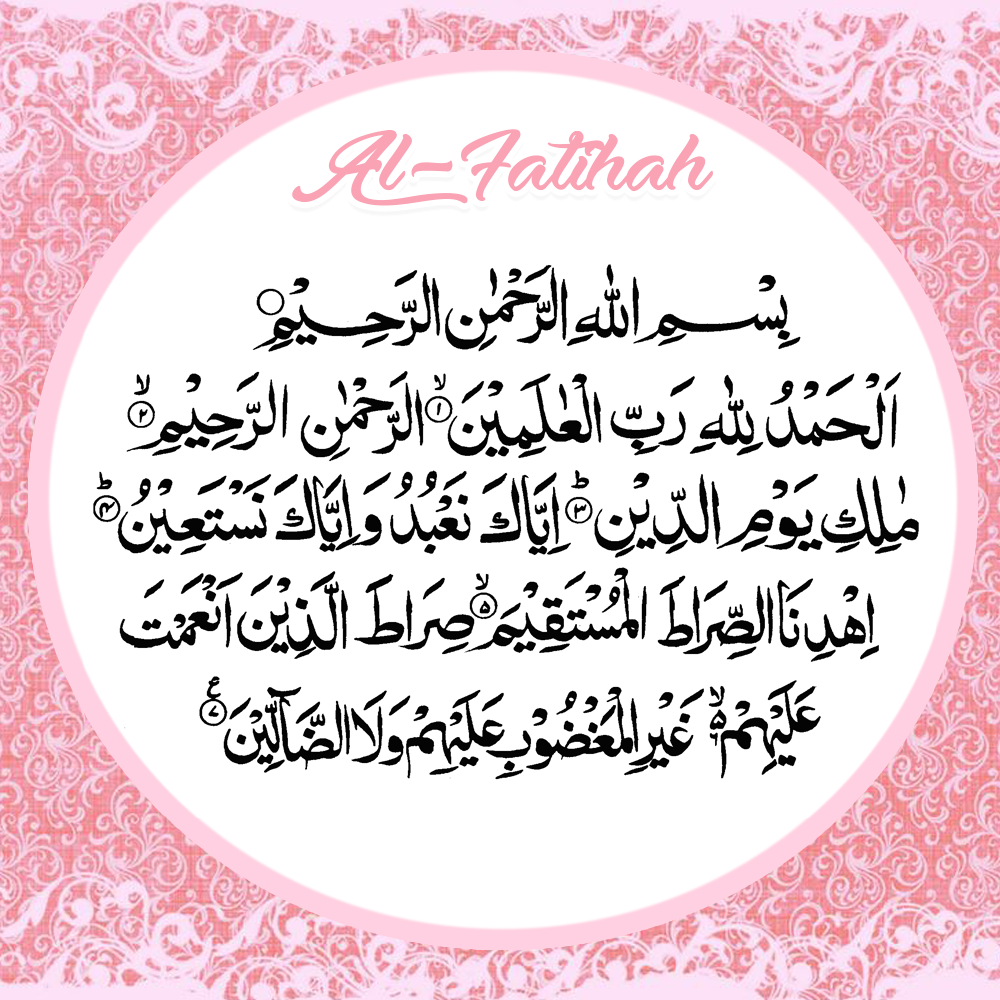 Al-Fatihah
بِسْمِ اللهِ الرَّحْمٰنِ الرَّحِيْمِ
اَلْحَمْدُ لِلّٰهِ رَبِّ الْعٰلَمِيْنَ ۙ﴿۱﴾ الرَّحْمٰنِ الرَّحِيْمِ ۙ﴿۲﴾
مٰلِكِ يَوْمِ الدِّيْنِ ؕ﴿۳﴾ اِيَّاكَ نَعْبُدُ وَاِيَّاكَ نَسْتَعِيْنُ ؕ﴿۴﴾
اِهْدِنَا الصِّرَاطَ الْمُسْتَقِيْمَ ۙ﴿۵﴾ صِرَاطَ الَّذِيْنَ اَنْعَمْتَ
عَلَيْهِمْ ۙ۵ غَيْرِ الْمَغْضُوْبِ عَلَيْهِمْ وَلَا الضَّآلِّيْنَ ﴿۷﴾ ع